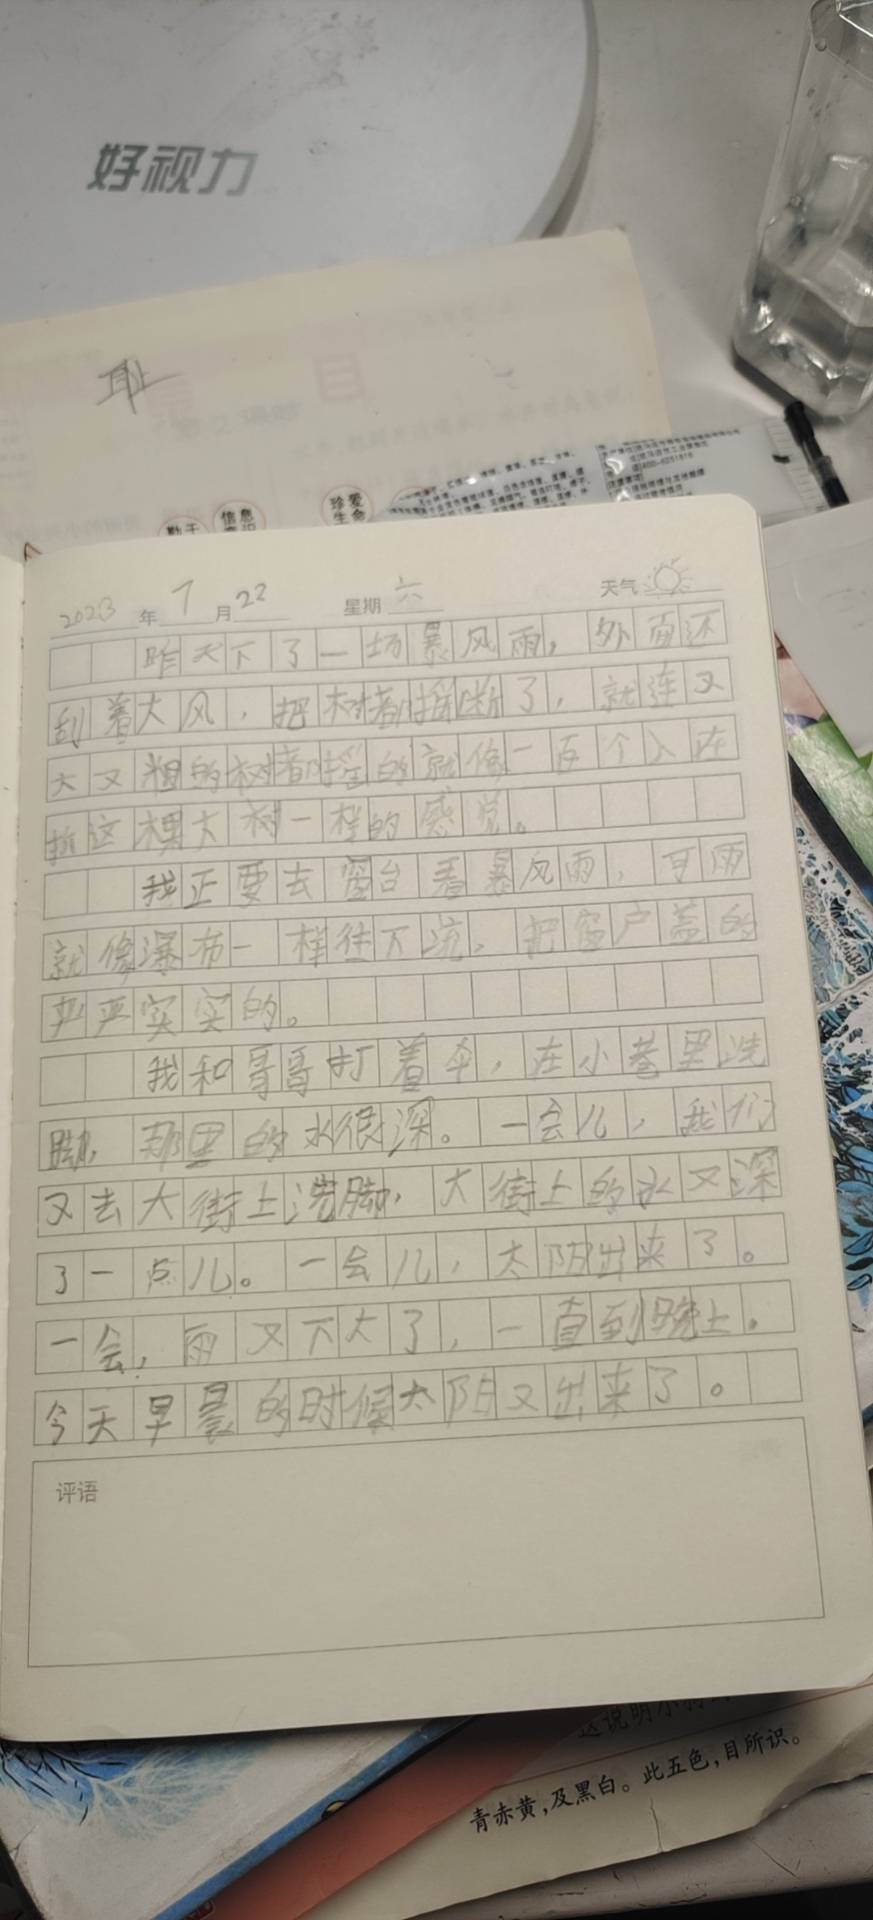 好视力
耻
珍爱
生命
信息
2023年7月22 星期六 天气
昨天下了一场暴风雨，外面还
刮着大风，把树都摇断了，就连又
大又粗的树都摇的就像一百个人在
拆这棵大树一样的感觉。
我正要去窗台看暴风雨，可雨
就像瀑布一样往下流，把窗户盖的
严严实实的。
我和哥哥打着伞，在小巷里洗
脚，那里的水很深。一会儿，我们
又去大街上洗脚，大街上的水又深
了一点儿。一会儿，太阳出来了。
一会，雨又下大了，一直到晚上。
今天早晨的时候太阳又出来了。
评语
这说明小
青赤黄，及黑白。此五色，目所识。